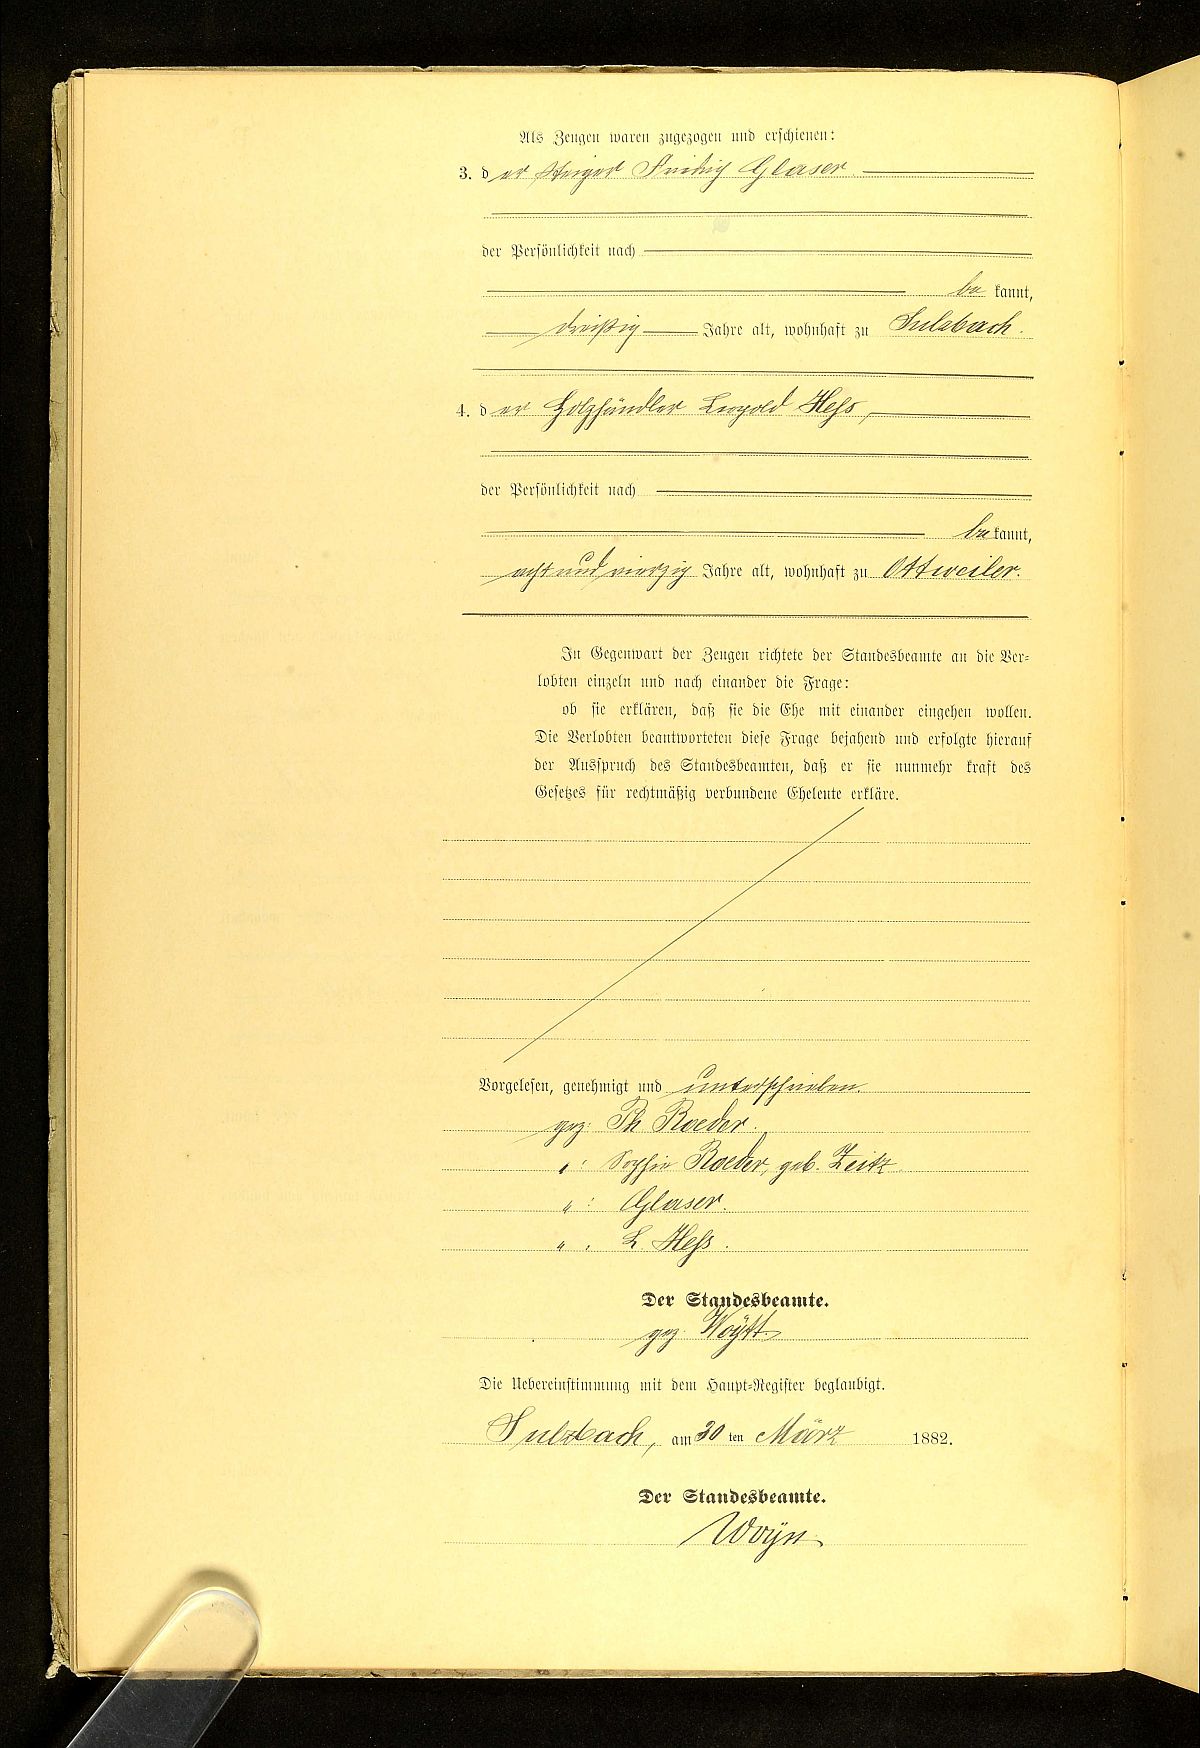 Als Zeugen waren zugezogen und erschienen:
3. der Steiger Fridrich Glaser
der Persönlichkeit nach
be kannt,
dreißig Jahre alt, wohnhaft zu Sulzbach.
4. der Holzhändler Leopold Heß,
der Persönlichkeit nach
bekannt,
acht und vierzig Jahre alt, wohnhaft zu Ottweiler.
In Gegenwart der Zeugen richtete der Standesbeamte an die Ver-
lobten einzeln und nach einander die Frage:
ob sie erklären, daß sie die Ehe mit einander eingehen wollen.
Die Verlobten beantworteten diese Frage bejahend und erfolgte hierauf
der Ausspruch des Standesbeamten, daß er sie nunmehr kraft des
Gesetzes für rechtmäßig verbundene Eheleute erkläre.
Vorgelesen, genehmigt und unterschrieben.
gez: Th Roeder.
": Sophie Roeder, geb. Zeitz
": Glaser.
": L. Heß.
Der Standesbeamte.
gez. Woÿtt
Die Uebereinstimmung mit dem Haupt-Register beglaubigt.
Sulzbach, am 30 ten März 1882.
Der Standesbeamte.